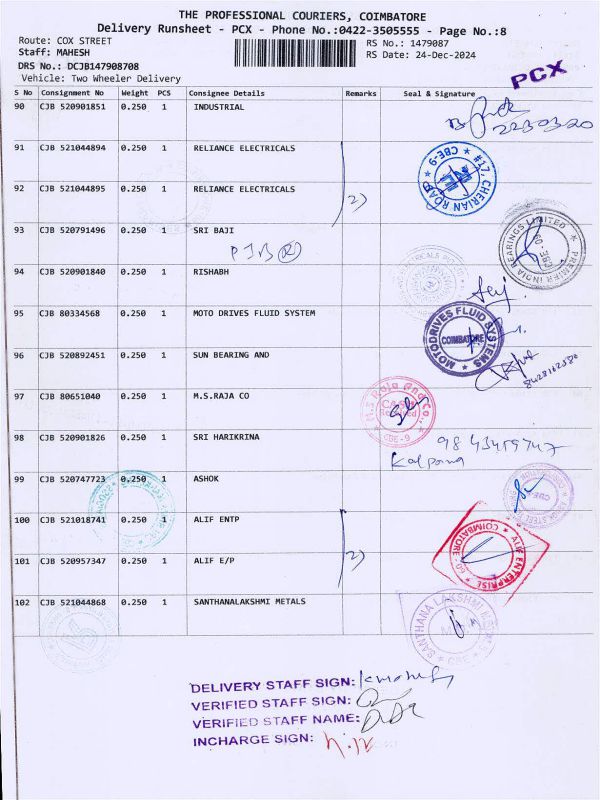 THE PROFESSIONAL COURIERS, COIMBATORE
Delivery Runsheet - PCX - Phone No.:0422-3505555 - Page No.:8
Route: COX STREET
RS No.: 1479087
Staff: MAHESH
RS Date: 24-Dec-2024
DRS No.: DCJB147908708
Vehicle: Two Wheeler Delivery
PCX
S No Consignment No Weight PCS Consignee Details Remarks Seal & Signature
90 CJB 520901851 0.250 1 INDUSTRIAL
91 CJB 521044894 0.250 1 RELIANCE ELECTRICALS
#17, CHERIAN ROAD CBE-9
92 CJB 521044895 0.250 1 RELIANCE ELECTRICALS
2)
93 CJB 520791496 0.250 1 SRI BAJI
PREMIER INDIA BEARINGS LIMITED CBE-09
94 CJB 520901840 0.250 1 RISHABH
95 CJB 80334568 0.250 1 MOTO DRIVES FLUID SYSTEM
MOTODRIVES FLUID SYSTEMS COIMBATORE
96 CJB 520892451 0.250 1 SUN BEARING AND
97 CJB 80651040 0.250 1 M.S.RAJA CO
M.S Raja And Co., CBE-9
98 CJB 520901826 0.250 1 SRI HARIKRINA
Kalpana
99 CJB 520747723 0.250 1 ASHOK
100 CJB 521018741 0.250 1 ALIF ENTP
ALIF ENTERPRISE COIMBATORE
101 CJB 520957347 0.250 1 ALIF E/P
2)
102 CJB 521044868 0.250 1 SANTHANALAKSHMI METALS
SANTHANA LAKSHMI CBE
DELIVERY STAFF SIGN:
VERIFIED STAFF SIGN:
VERIFIED STAFF NAME:
INCHARGE SIGN: